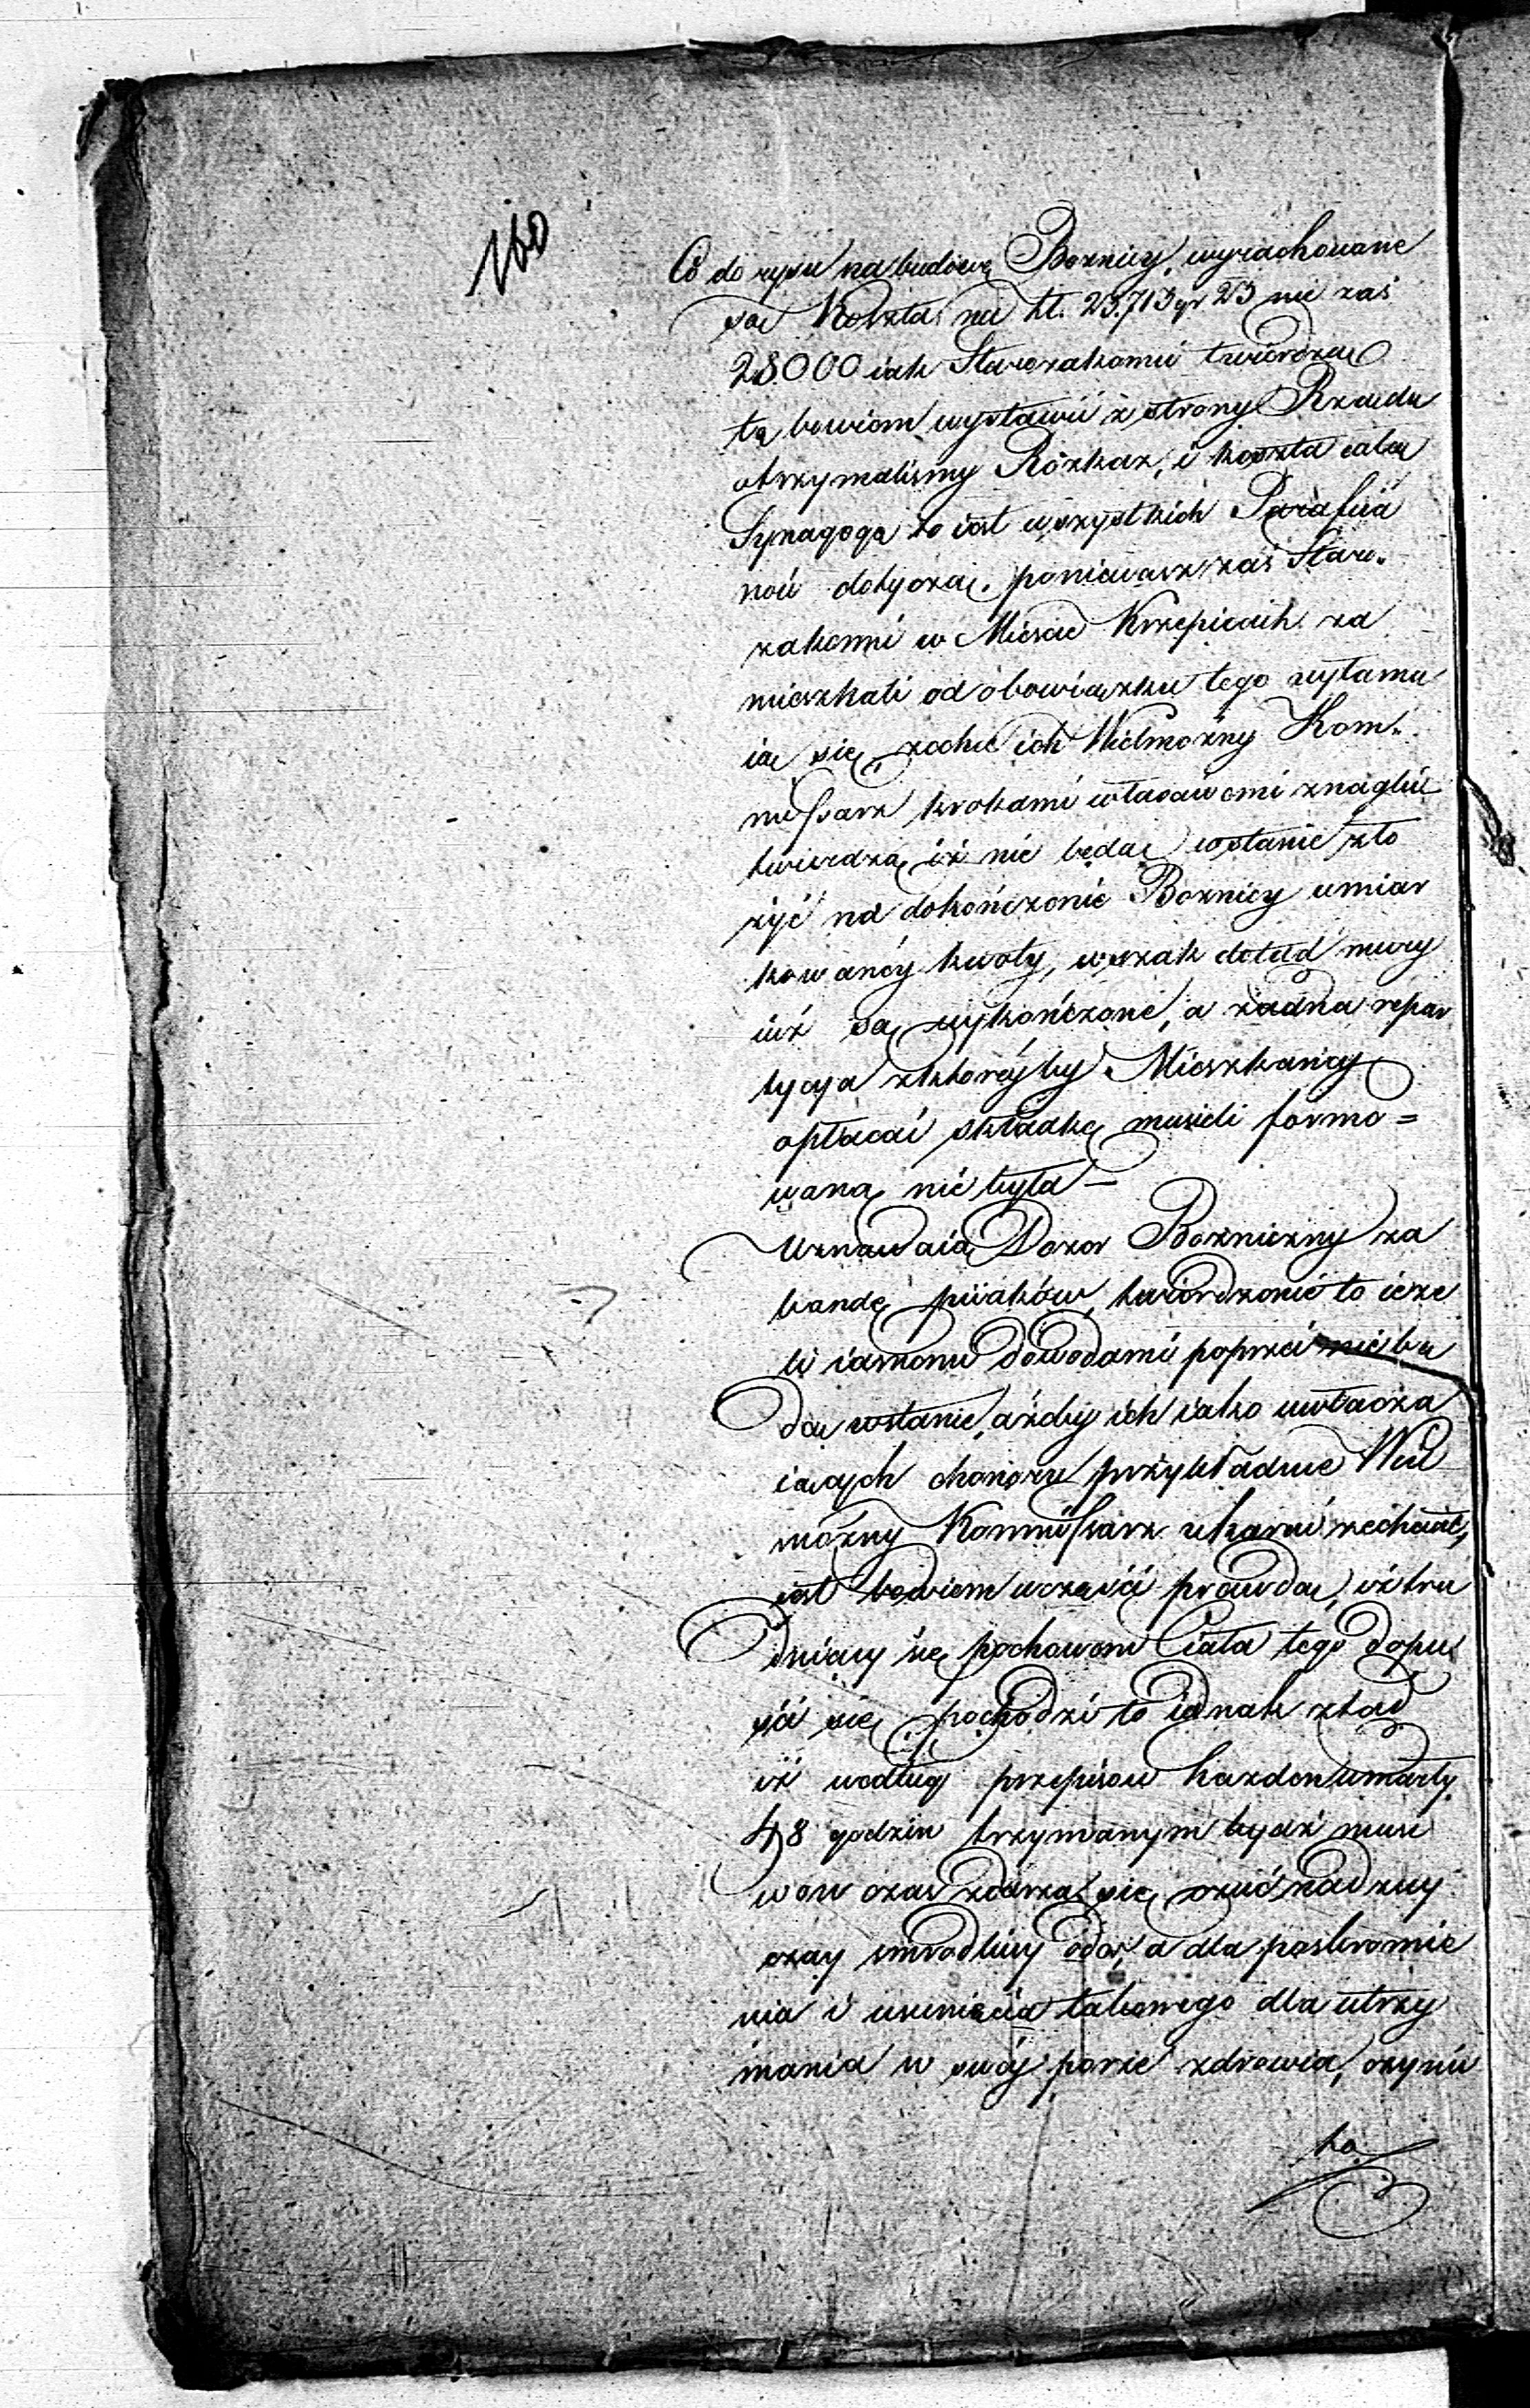 160
Co do rysu na budowę Boznicy, wyrachowane
są Koszta na Zł. 23.713 gr 23 nie zaś
28.000 iak Starozakonni twierdzą
tę bowiem wystawić z strony Rządu
otrzymalismy Rozkaz, i koszta całą
Synagogę to iest wszystkich Parafiia
noń dotyczą. poniewasz zaś Staro.
zakonni w Miescie Krzepicach za
mieszkali od obowiązku tego wyłamu
ią się, zechce ich Wielmożny Kom.
missarz krokami właściwemi znaglić
twierdzą iż nie będąc wstanie zło
żyć na dokończenie Boznicy umiar
kowanéy kwoty, wszak dotąd mury
iuż są wykończone, a żadna repar
tycya zktoréyby Mieszkańcy
opłacać składkę musieli formo=
waną nie była —
Uznawaią Dozor Bozniczny za
bandę piiaków, twierdzenie to ieże
li iasnemi dowodami poprzeć nie bę
dą wstanie, ażeby ich iako uwłacza
iących honoru przykładnie Wiel
możny Kommissarz ukarać zechciał,
iest bowiem wczęści prawdą, iż tru
dniący się pochowem Ciała tego dopu
ści się pochodzi to iednak ztąd
iż według przepisow każden umarły
48 godzin trzymanym bydź musi
wow czas zdarza się czuć nadzwy
czay smrodliwy odor, a dla poskromie
nia i usunięcia takowego dla utrzy
mania w swéj porze zdrowia, czyni